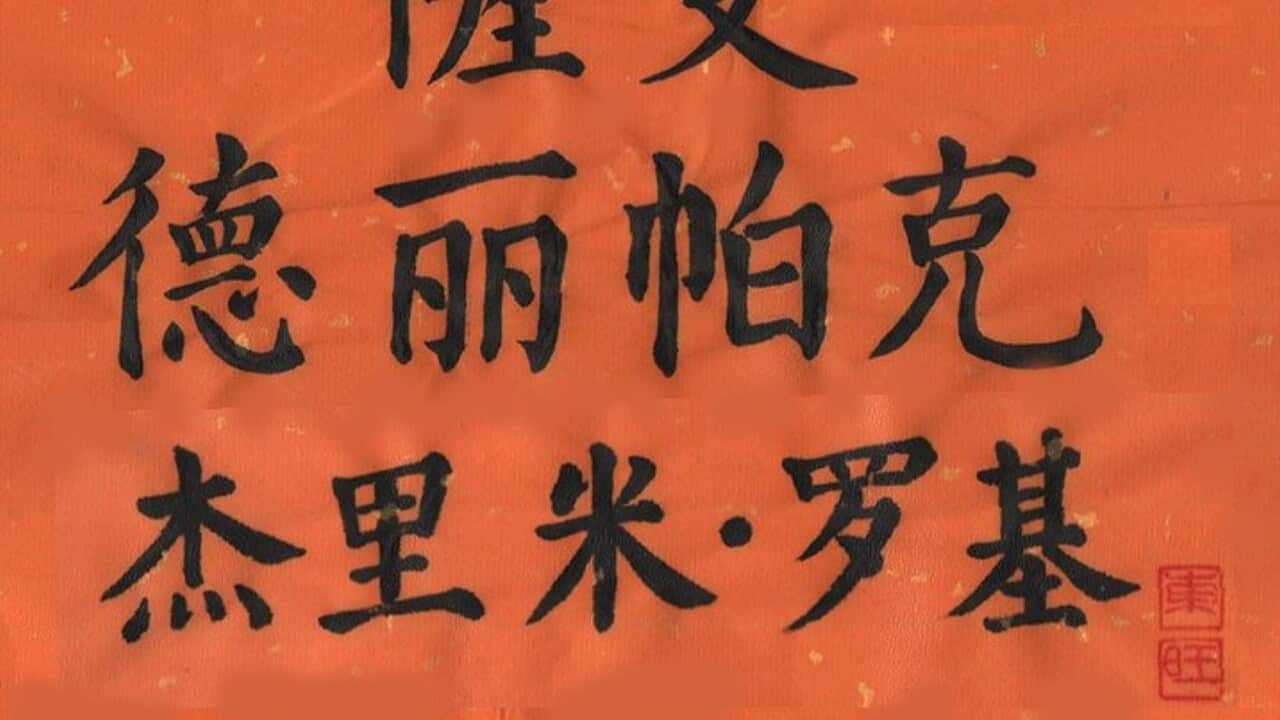 德丽帕克
杰里米·罗基